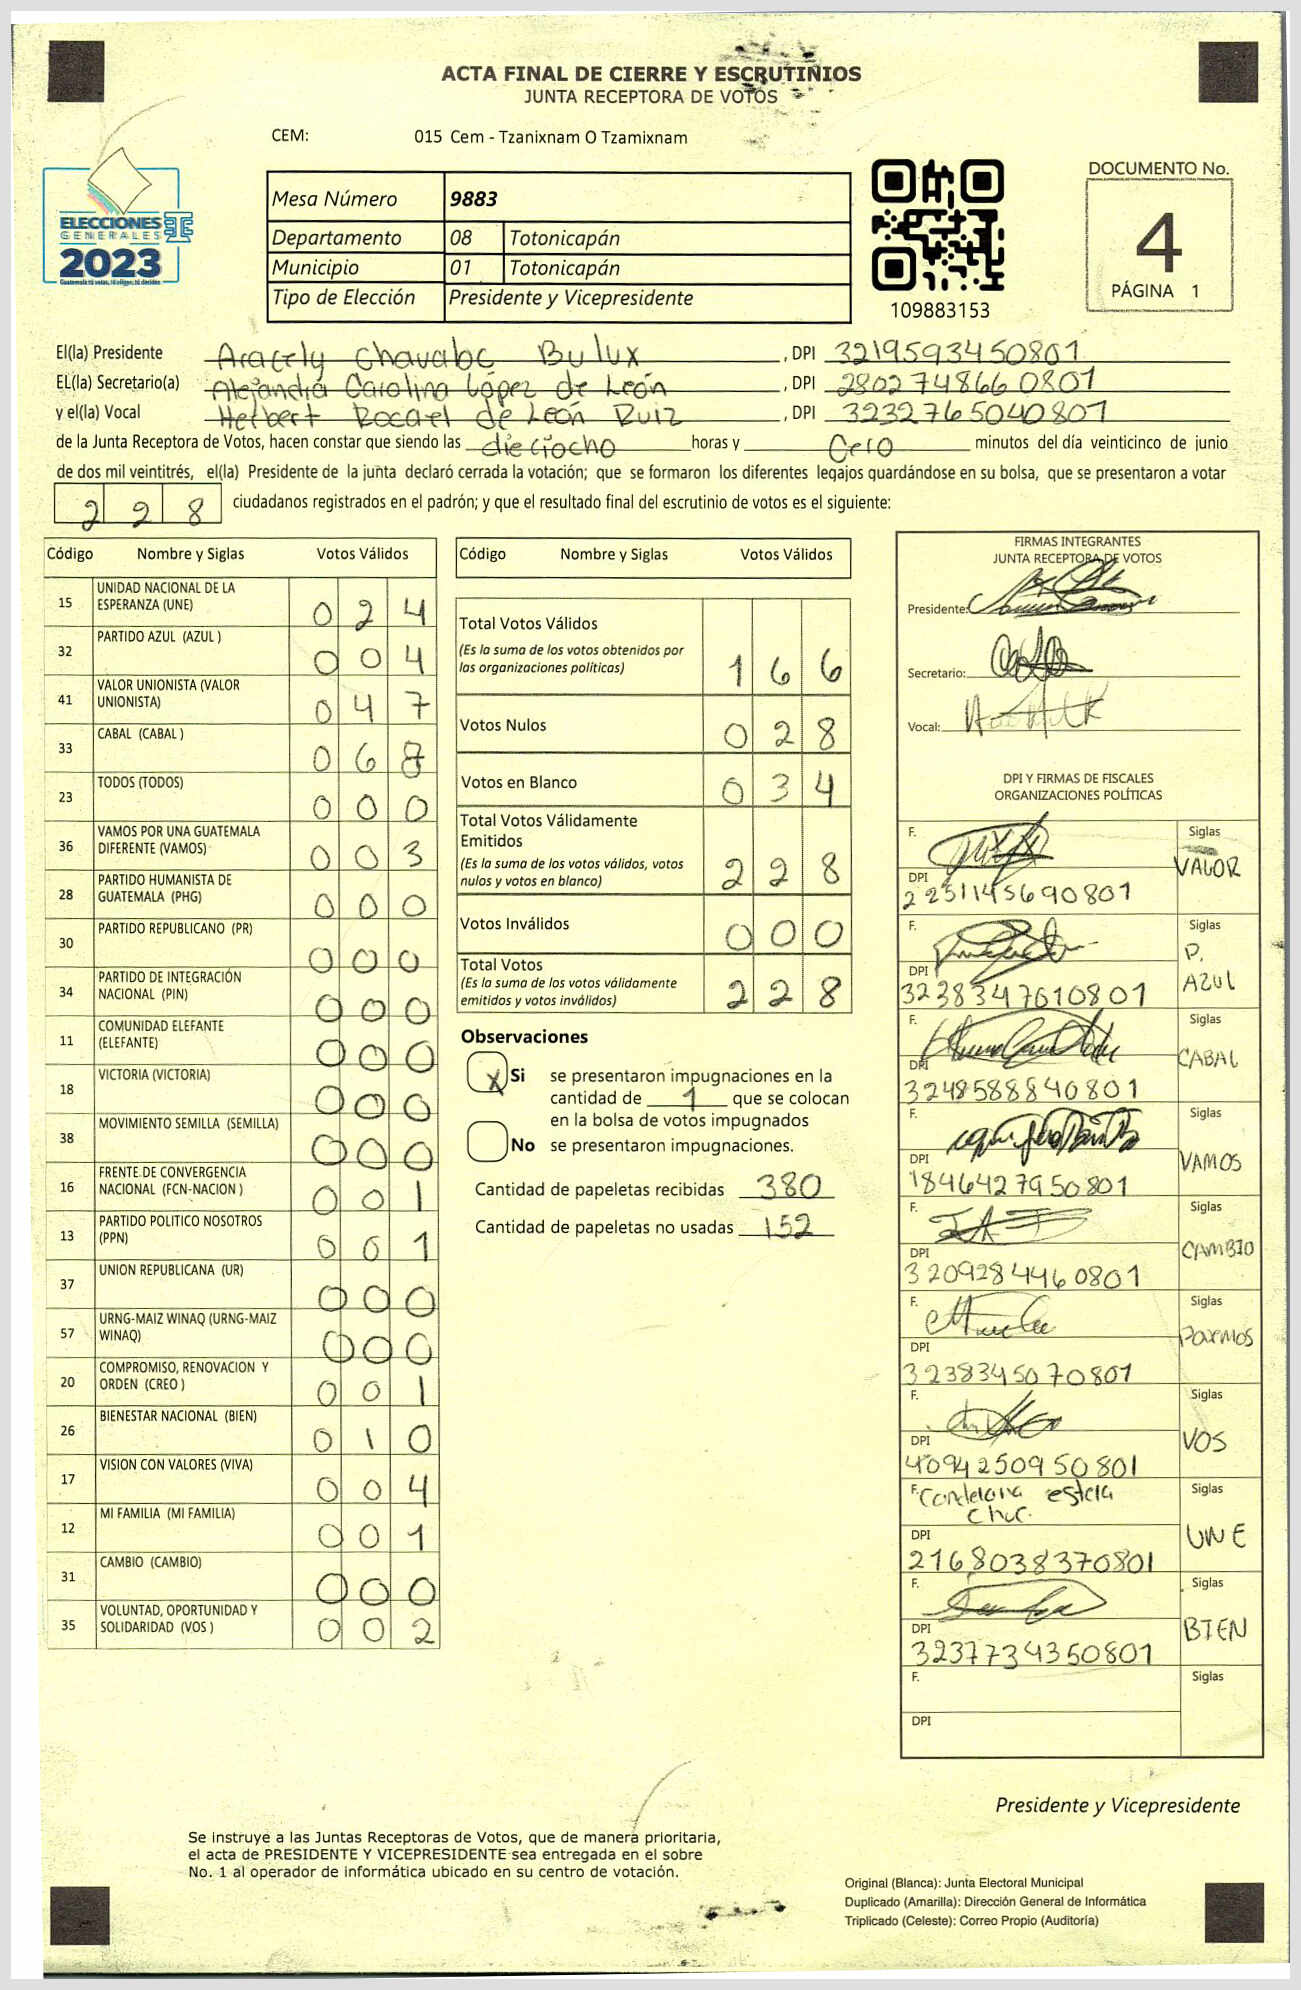 ACTA FINAL DE CIERRE Y ESCRUTINIOS
JUNTA RECEPTORA DE VOTOS
CEM: 015 Cem - Tzanixnam O Tzamixnam
ELECCIONES
GENERALES
2023
Guatemala tú votas, tú eliges, tú decides
Mesa Número 9883
Departamento 08 Totonicapán
Municipio 01 Totonicapán
Tipo de Elección Presidente y Vicepresidente
109883153
DOCUMENTO No.
4
PÁGINA 1
El(la) Presidente Aracely Chavabc Bulux, DPI 3219593450801
EL(la) Secretario(a) Alejandra Carolina López de León, DPI 2802748660801
y el(la) Vocal Herbert Rocael de León Ruiz, DPI 3232765040801
de la Junta Receptora de Votos, hacen constar que siendo las dieciocho horas y Cero minutos del día veinticinco de junio
de dos mil veintitrés, el(la) Presidente de la junta declaró cerrada la votación; que se formaron los diferentes legajos guardándose en su bolsa, que se presentaron a votar
228 ciudadanos registrados en el padrón; y que el resultado final del escrutinio de votos es el siguiente:
Código Nombre y Siglas Votos Válidos
15 UNIDAD NACIONAL DE LA ESPERANZA (UNE) 024
32 PARTIDO AZUL (AZUL ) 004
41 VALOR UNIONISTA (VALOR UNIONISTA) 047
33 CABAL (CABAL ) 068
23 TODOS (TODOS) 000
36 VAMOS POR UNA GUATEMALA DIFERENTE (VAMOS) 003
28 PARTIDO HUMANISTA DE GUATEMALA (PHG) 000
30 PARTIDO REPUBLICANO (PR) 000
34 PARTIDO DE INTEGRACIÓN NACIONAL (PIN) 000
11 COMUNIDAD ELEFANTE (ELEFANTE) 000
18 VICTORIA (VICTORIA) 000
38 MOVIMIENTO SEMILLA (SEMILLA) 000
16 FRENTE DE CONVERGENCIA NACIONAL (FCN-NACION ) 001
13 PARTIDO POLITICO NOSOTROS (PPN) 001
37 UNION REPUBLICANA (UR) 000
57 URNG-MAIZ WINAQ (URNG-MAIZ WINAQ) 000
20 COMPROMISO, RENOVACION Y ORDEN (CREO ) 001
26 BIENESTAR NACIONAL (BIEN) 010
17 VISION CON VALORES (VIVA) 004
12 MI FAMILIA (MI FAMILIA) 001
31 CAMBIO (CAMBIO) 000
35 VOLUNTAD, OPORTUNIDAD Y SOLIDARIDAD (VOS ) 002
Código Nombre y Siglas Votos Válidos
Total Votos Válidos 166
(Es la suma de los votos obtenidos por
las organizaciones políticas)
Votos Nulos 028
Votos en Blanco 034
Total Votos Válidamente
Emitidos 228
(Es la suma de los votos válidos, votos
nulos y votos en blanco)
Votos Inválidos 000
Total Votos 228
(Es la suma de los votos válidamente
emitidos y votos inválidos)
Observaciones
X Si se presentaron impugnaciones en la
cantidad de 1 que se colocan
en la bolsa de votos impugnados
No se presentaron impugnaciones.
Cantidad de papeletas recibidas 380
Cantidad de papeletas no usadas 152
FIRMAS INTEGRANTES
JUNTA RECEPTORA DE VOTOS
Presidente:
Secretario:
Vocal:
DPI Y FIRMAS DE FISCALES
ORGANIZACIONES POLÍTICAS
F. Siglas VALOR
DPI 2251145690801
F. Siglas P. AZUL
DPI 3238347610801
F. Siglas CABAL
DPI 3248588840801
F. Siglas VAMOS
DPI 1846427950801
F. Siglas CAMBIO
DPI 3209284460801
F. Siglas
DPI 3238345070801
F. Siglas VOS
DPI 4094250950801
F. Candelaria estela Chuc. Siglas UNE
DPI 2168038370801
F. Siglas BIEN
DPI 3237734350801
F. Siglas
DPI
Presidente y Vicepresidente
Se instruye a las Juntas Receptoras de Votos, que de manera prioritaria,
el acta de PRESIDENTE Y VICEPRESIDENTE sea entregada en el sobre
No. 1 al operador de informática ubicado en su centro de votación.
Original (Blanca): Junta Electoral Municipal
Duplicado (Amarilla): Dirección General de Informática
Triplicado (Celeste): Correo Propio (Auditoría)